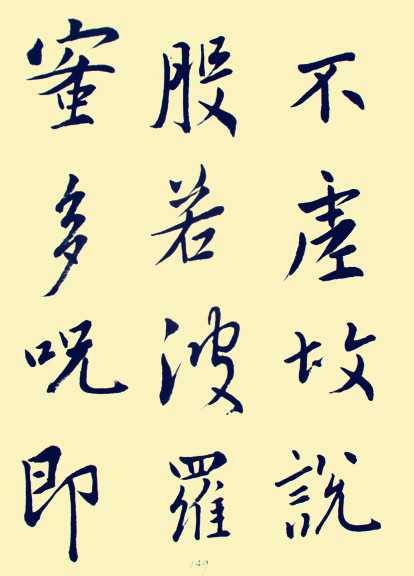 不虛故說
般若波羅
蜜多呪即
149